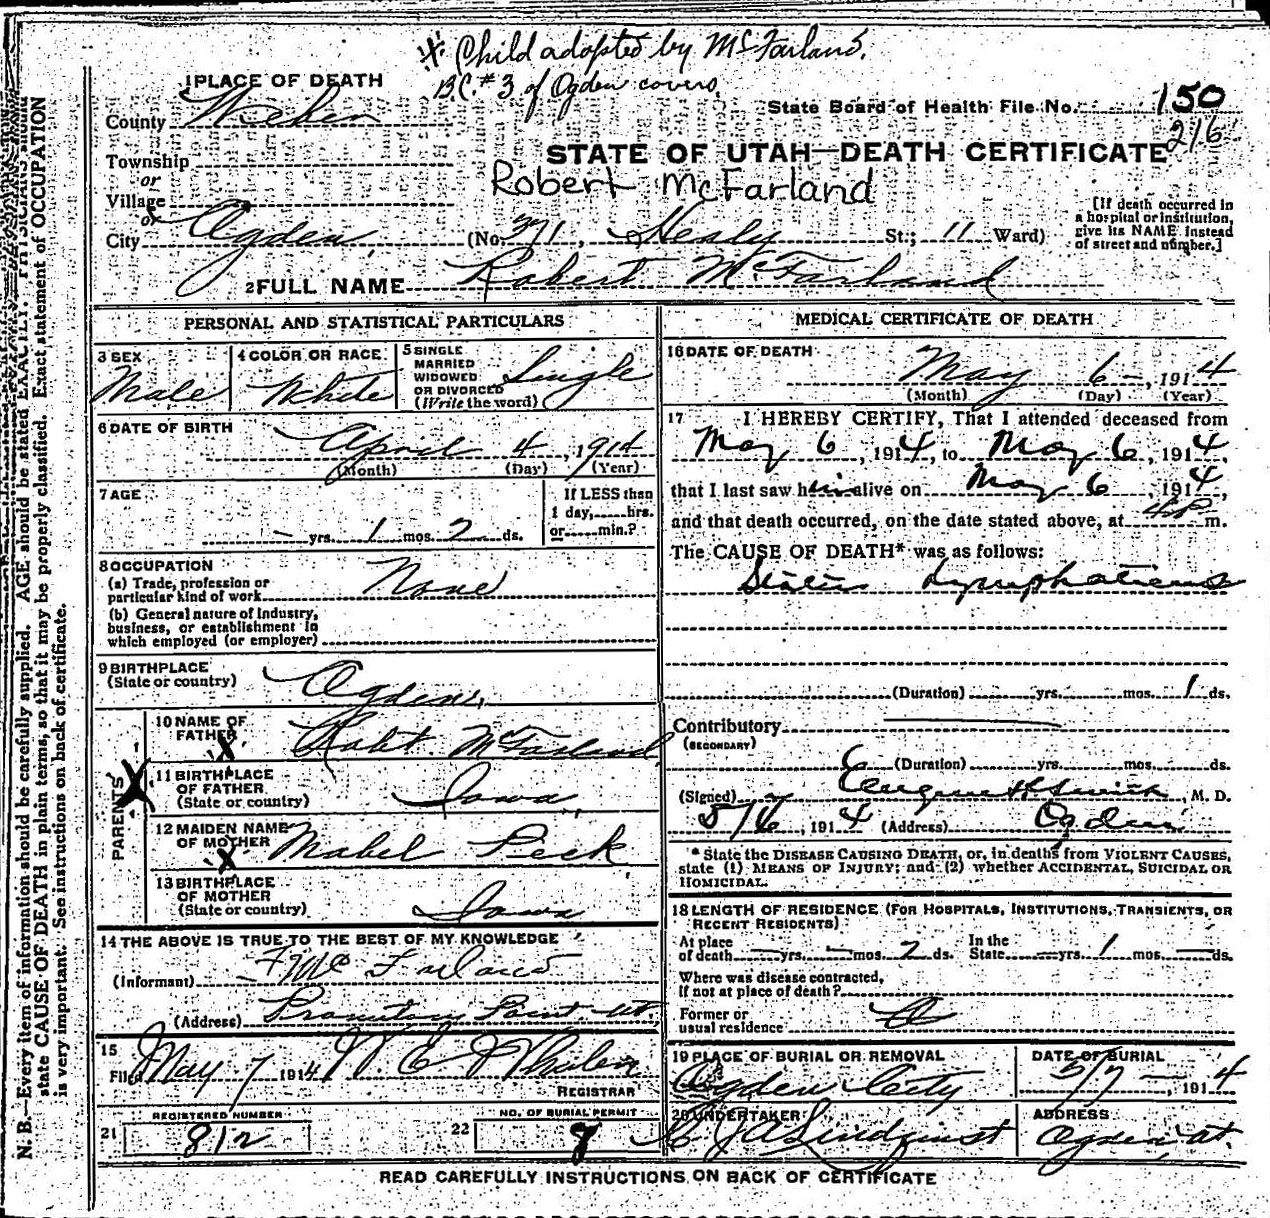 * Child adopted by McFarland.
B.C. #3 of Ogden covers
1 PLACE OF DEATH
County Weber
State Board of Health File No. 150
216
Township
or
STATE OF UTAH—DEATH CERTIFICATE
Robert McFarland
Village
or
City Ogden (No. 271, Healy St.; 11 Ward)
[If death occurred in
a hospital or institution,
give its NAME instead
of street and number.]
2 FULL NAME Robert McFarland
PERSONAL AND STATISTICAL PARTICULARS
3 SEX Male
4 COLOR OR RACE White
5 SINGLE
MARRIED
WIDOWED
OR DIVORCED
(Write the word) Single
6 DATE OF BIRTH
April 4, 1914
(Month) (Day) (Year)
7 AGE
— yrs. 1 mos. 2 ds.
If LESS than
1 day, hrs.
or min.?
8 OCCUPATION
(a) Trade, profession or
particular kind of work None
(b) General nature of industry,
business, or establishment in
which employed (or employer)
9 BIRTHPLACE
(State or country) Ogden,
PARENTS
10 NAME OF
FATHER Robt. McFarland
X
11 BIRTHPLACE
OF FATHER
(State or country) Iowa,
X
12 MAIDEN NAME
OF MOTHER Mabel Peck
X
13 BIRTHPLACE
OF MOTHER
(State or country) Iowa
14 THE ABOVE IS TRUE TO THE BEST OF MY KNOWLEDGE
(Informant) McFarland
(Address) Promitory Point Ut.
15
Filed May 7 1914
REGISTRAR
REGISTERED NUMBER
21 812
NO. OF BURIAL PERMIT
22 8
MEDICAL CERTIFICATE OF DEATH
16 DATE OF DEATH
May 6 —, 1914
(Month) (Day) (Year)
17 I HEREBY CERTIFY, That I attended deceased from
May 6, 1914, to May 6, 1914,
that I last saw him alive on May 6, 1914,
and that death occurred, on the date stated above, at 4 P m.
The CAUSE OF DEATH* was as follows:
Status Lymphaticus
(Duration) yrs. mos. 1 ds.
Contributory
(SECONDARY)
(Duration) yrs. mos. ds.
(Signed) Eugene H Smith, M. D.
5/6, 1914 (Address) Ogden
* State the DISEASE CAUSING DEATH, or, in deaths from VIOLENT CAUSES,
state (1) MEANS OF INJURY; and (2) whether ACCIDENTAL, SUICIDAL OR
HOMICIDAL.
18 LENGTH OF RESIDENCE (FOR HOSPITALS, INSTITUTIONS, TRANSIENTS, OR
RECENT RESIDENTS)
At place
of death — yrs. — mos. 2 ds. In the
State — yrs. 1 mos. — ds.
Where was disease contracted,
if not at place of death?
Former or
usual residence
19 PLACE OF BURIAL OR REMOVAL
Ogden City
DATE OF BURIAL
5/7 — 1914
20 UNDERTAKER
Lindquist
ADDRESS
Ogden, Ut.
READ CAREFULLY INSTRUCTIONS ON BACK OF CERTIFICATE
N. B.—Every item of information should be carefully supplied. AGE should be stated EXACTLY. PHYSICIANS should
state CAUSE OF DEATH in plain terms, so that it may be properly classified. Exact statement of OCCUPATION
is very important. See instructions on back of certificate.